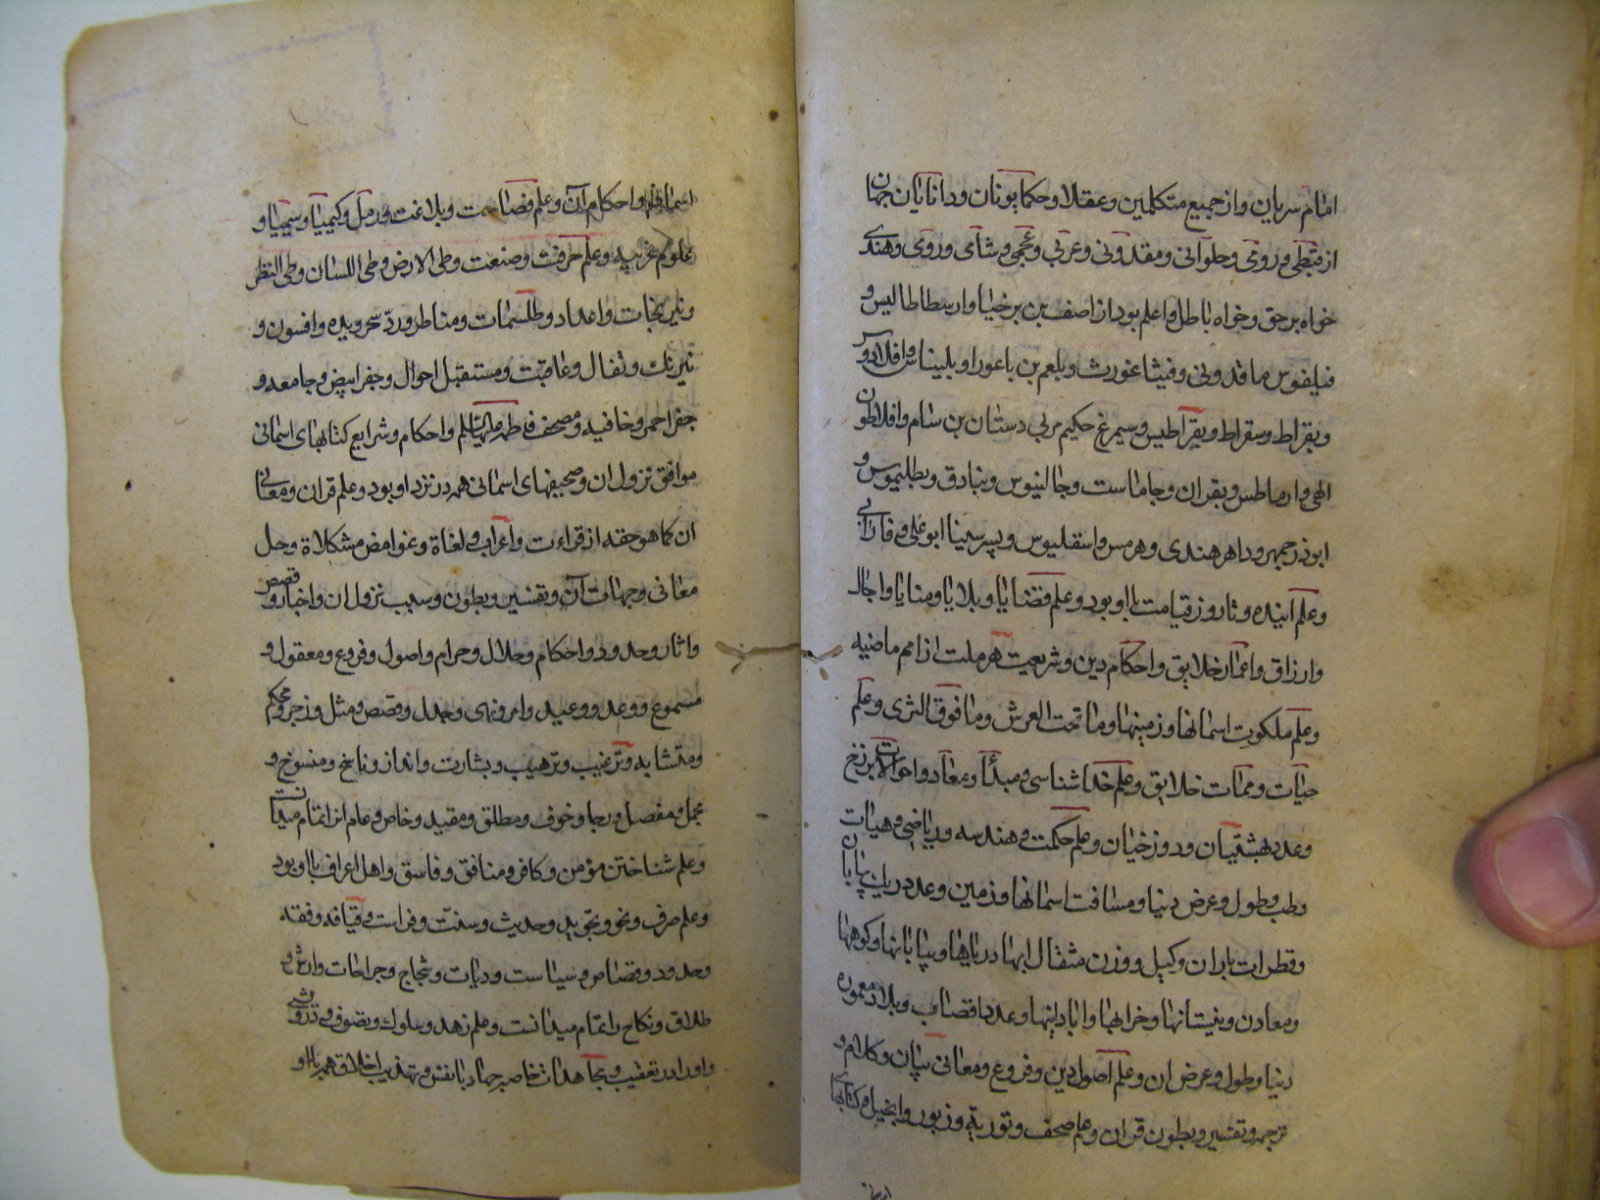 امام سریان و از جمیع متکلمین و عقلا و حکما یونان و دانایان جهان
از قبطی و رومی و حلوانی و مقدونی و عربی و عجمی و شامی و روی و هندی
خواه بر حق و خواه باطل و اعلم بود از اصف بن برخیا و ارسطاطالیس و
فیلفوس ماقدونی و فیثاغورث و بلعم بن باعورا و بلیناس و افلادوس
و بقراط و سقراط و بقراطیس و سیمرغ حکیم مربی دستان بن سام و افلاطون
الهی و ارماطس و بقران و جاماست و جالینوس و بنادق و بطلیموس و
ابوذرجمهر و داهر هندی و هرمس و اسقلیوس و پسر سینا ابوعلی و فارابی
و علم آینده و تا روز قیامت با او بود و علم قضایا و بلایا و منایا و اجال
و ارزاق و اعمار خلایق و احکام دین و شریعت هر ملت از امم ماضیه
و علم ملکوت اسمانها و زمینها و ما تحت العرش و ما فوق الثری و علم
حیات و ممات خلایق و علم خدا شناسی و مبدأ و معاد و احوالات برزخ
و عدد بهشتیان و دوزخیان و علم حکمت و هندسه و ریاضی و هیات
و طب و طول و عرض دنیا و مسافت اسمانها و زمین و عدد ریك بیابان
و قطرات باران و کیل و وزن مثقال ابها دریاها و بیابانها و کوهها
و معادن و نیستانها و خرابها و ابادانیها و عدد قصبات و بلاد معموره
دنیا و طول و عرض ان و علم اصول دین و فروع و معانی بیان و کلام و
ترجمه و تفسیر و بطون قران و علم صحف و توریة و زبور و انجیل و کتابهای
اسمانی و احکام آن و علم فصاحت و بلاغت و رمل و کیمیا و سیمیا و
علوم غریبه و علم حرفت و صنعت و طی الارض و طی اللسان و طی النظر
و نیرنجات و اعداد و طلسمات و مناظر و ردّ سحر و یده و افسون و
نیرنك و تفال و عاقبت و مستقبل احوال و جفر ابیض و جامعه و
جفر احمر و خافیه و مصحف فاطمه علیها السلم و احکام و شرایع کتابهای اسمانی
موافق نزول ان و صحیفهای اسمانی همه در نزد او بود و علم قران و معانی
ان کما هو حقه از قراءت و اعراب و لغاة و غوامض مشکلاة و حل
معانی و جهات آن و تفسیر و بطون و سبب نزول ان و اخبار و قصص
و اثار و حدود و احکام و حلال و حرام و اصول و فروع و معقول و
مسموع و وعد و وعید و امر و نهی و جدل و قصص و مثل و زجر و محکم
و متشابه و ترغیب و ترهیب و بشارت و انذار و ناسخ و منسوخ و
مجمل و مفصل و رجا و خوف و مطلق و مقید و خاص و عام انرا تمام میدانست
و علم شناختن مؤمن و کافر و منافق و فاسق و اهل اعراف با او بود
و علم صرف و نحو و تجوید و حدیث و سنت و فراست و قیافه و فقه
و حدود و قصاص و سیاست و دیات و شجاج و جراحات و ارش و
طلاق و نکاح را تمام میدانست و علم زهد و سلوك و تصوف و درویشی
و اوراد و تعقیب و مجاهدات خاصه جهاد با نفس و تهذیب اخلاق همه با او